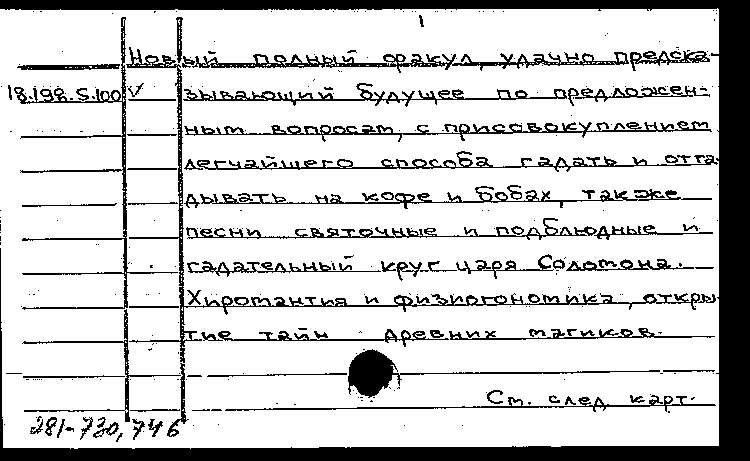 1
Новый полный факул, удачно предска-
18.198.5.100 V зывающий будущее по предложен-
ным вопросам, с присовокуплением
легчайшего способа гадать и отга-
дывать на кофе и бобах, также
песни святочные и подблюдные и
гадательный круг царя Соломона.
Хиромантия и физиогономика, откры-
тие тайн древних магиков.
См. след. карт.
281-730, 746